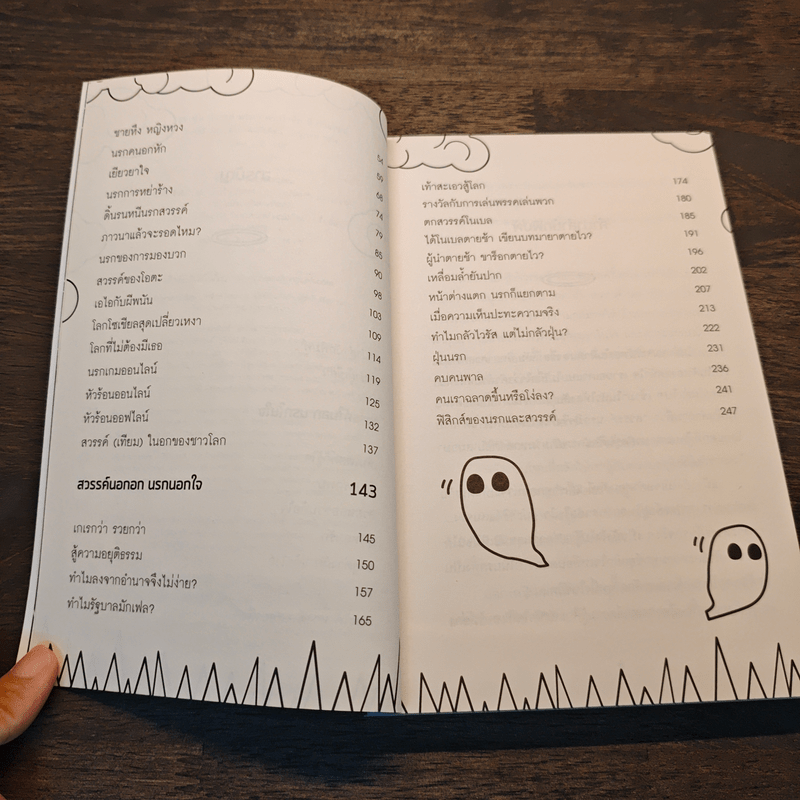 ชายหึง หญิงหวง 54
นรกคนอกหัก 59
เยียวยาใจ 68
นรกการหย่าร้าง 74
ดิ้นรนหนีนรกสวรรค์ 79
ภาวนาแล้วจะรอดไหม? 85
นรกของการมองบวก 90
สวรรค์ของโอตะ 98
เอไอกับผีพนัน 103
โลกโซเชียลสุดเปลี่ยวเหงา 109
โลกที่ไม่ต้องมีเธอ 114
นรกเกมออนไลน์ 119
หัวร้อนออนไลน์ 125
หัวร้อนออฟไลน์ 132
สวรรค์ (เทียม) ในอกของชาวโลก 137
สวรรค์นอกอก นรกนอกใจ 143
เกเรกว่า รวยกว่า 145
สู้ความอยุติธรรม 150
ทำไมลงจากอำนาจจึงไม่ง่าย? 157
ทำไมรัฐบาลมักเฟล? 165
เท้าสะเอวสู้โลก 174
รางวัลกับการเล่นพรรคเล่นพวก 180
ตกสวรรค์ในเบล 185
ได้โนเบลตายช้า เขียนบทมายาตายไว? 191
ผู้นำตายช้า ขาร็อกตายไว? 196
เหลื่อมล้ำยันปาก 202
หน้าต่างแตก นรกก็แยกตาม 207
เมื่อความเห็นปะทะความจริง 213
ทำไมกลัวไวรัส แต่ไม่กลัวฝุ่น? 222
ฝุ่นนรก 231
คบคนพาล 236
คนเราฉลาดขึ้นหรือโง่ลง? 241
ฟิสิกส์ของนรกและสวรรค์ 247